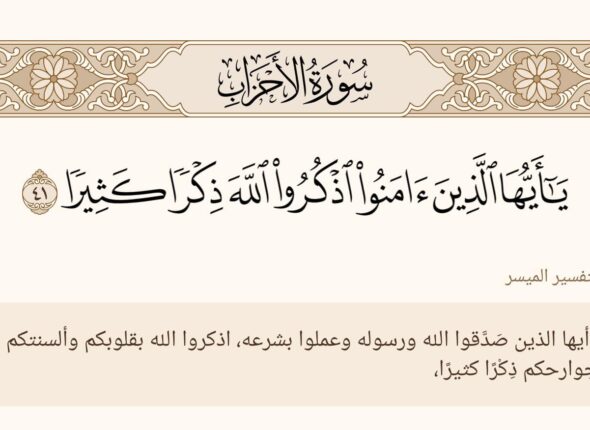 سُورَةُ الأَحْزَابِ
يَـٰٓأَيُّهَا ٱلَّذِينَ ءَامَنُوا۟ ٱذْكُرُوا۟ ٱللَّهَ ذِكْرًا كَثِيرًا ٤١
تفسير الميسر
أيها الذين صَدَّقوا الله ورسوله وعملوا بشرعه، اذكروا الله بقلوبكم وألسنتكم
جوارحكم ذِكْرًا كثيرًا،